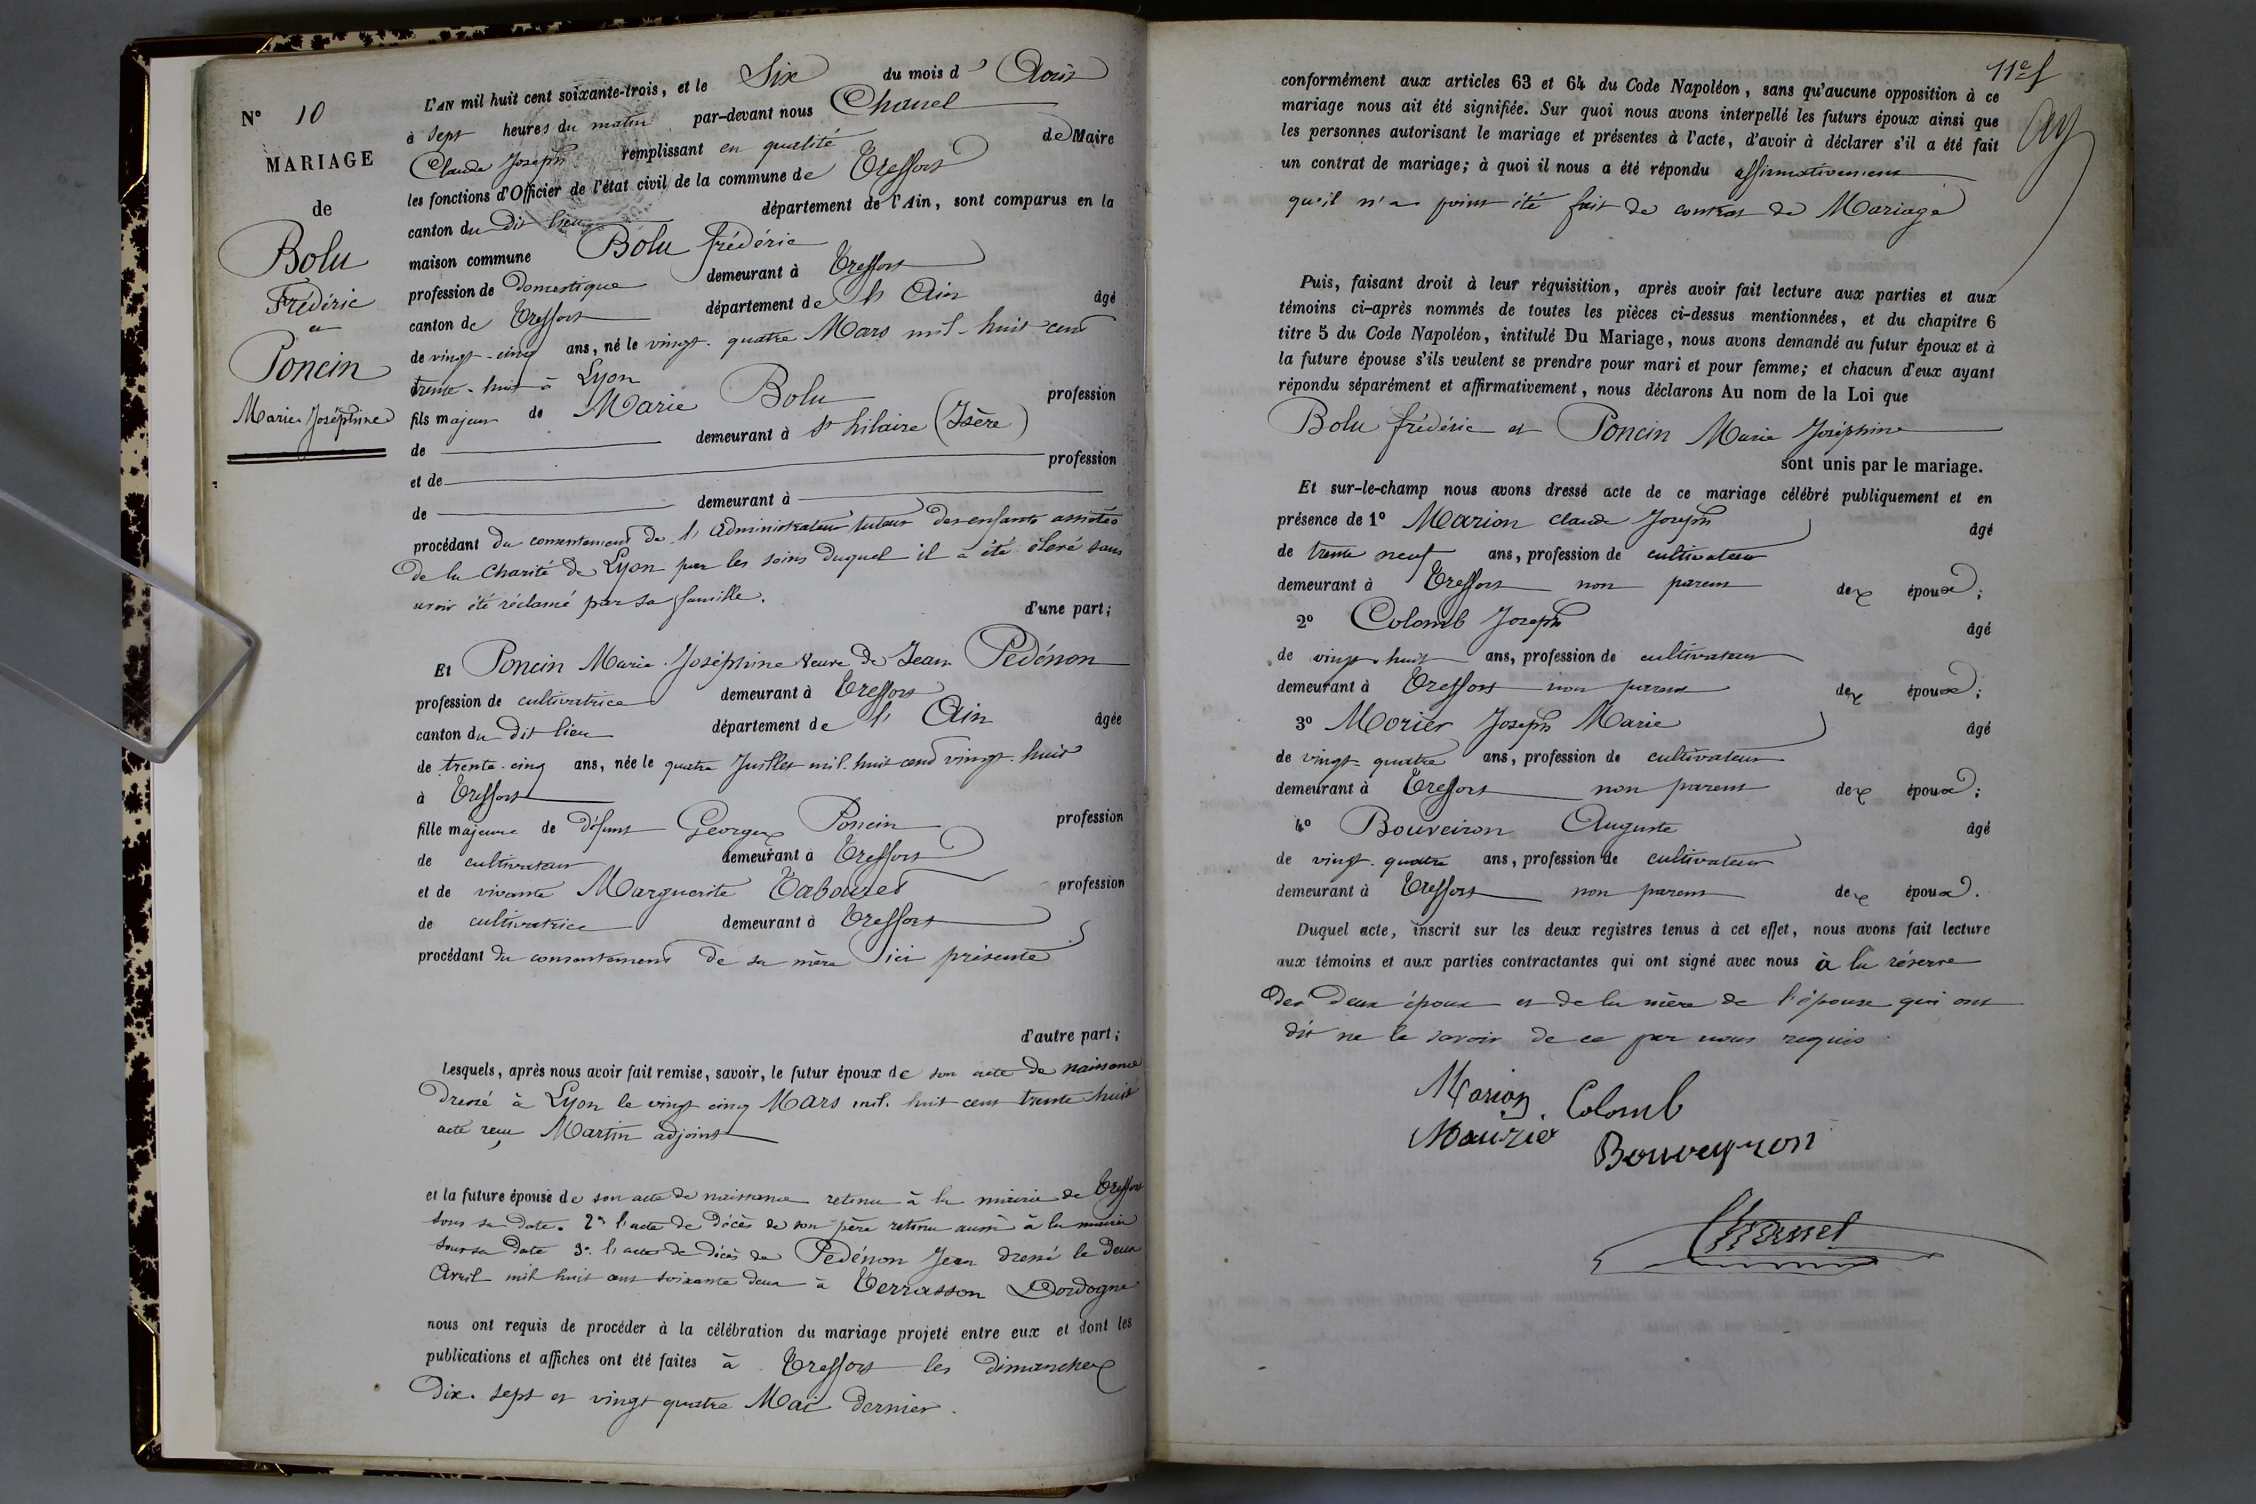 N° 10
MARIAGE
de
Bolu
Frédéric
et
Poncin
Marie Joséphine
L'AN mil huit cent soixante-trois, et le Six du mois d' Août
à sept heures du matin par-devant nous Chanel
Claude Joseph remplissant en qualité de Maire
les fonctions d'Officier de l'état civil de la commune de Treffort
canton du dit lieu département de l'Ain, sont comparus en la
maison commune Bolu frédéric
profession de domestique demeurant à Treffort
canton de Treffort département de l'Ain âgé
de vingt-cinq ans, né le vingt-quatre Mars mil-huit cent
trente-huit à Lyon
fils majeur de Marie Bolu profession
de demeurant à St hilaire (Isère)
et de profession
de demeurant à
procédant du consentement de l'administrateur tuteur des enfants assistés
de la Charité de Lyon par les soins duquel il a été élevé sans
avoir été réclamé par sa famille.
d'une part;
Et Poncin Marie Joséphine veuve de Jean Pedénon
profession de cultivatrice demeurant à Treffort
canton du dit lieu département de l'Ain âgée
de trente-cinq ans, née le quatre Juillet mil-huit cent vingt-huit
à Treffort
fille majeure de défunt Georges Poncin profession
de cultivateur demeurant à Treffort
et de vivante Marguerite Tabouret profession
de cultivatrice demeurant à Treffort
procédant du consentement de sa mère ici présente
d'autre part;
Lesquels, après nous avoir fait remise, savoir, le futur époux de son acte de naissance
dressé à Lyon le vingt cinq Mars mil-huit cent trente huit
acte reçu Martin adjoint
et la future épouse de son acte de naissance retenu à la mairie de Treffort
sous sa date. 2° l'acte de décès de son père retenu aussi à la mairie
sous sa date 3° l'acte de décès de Pedénon Jean dressé le deux
Avril mil huit cent soixante deux à Terrasson Dordogne
nous ont requis de procéder à la célébration du mariage projeté entre eux et dont les
publications et affiches ont été faites à Treffort les dimanches
dix-sept et vingt quatre Mai dernier.
11e f
conformément aux articles 63 et 64 du Code Napoléon, sans qu'aucune opposition à ce
mariage nous ait été signifiée. Sur quoi nous avons interpellé les futurs époux ainsi que
les personnes autorisant le mariage et présentes à l'acte, d'avoir à déclarer s'il a été fait
un contrat de mariage; à quoi il nous a été répondu affirmativement
qu'il n'a point été fait de contrat de Mariage
Puis, faisant droit à leur réquisition, après avoir fait lecture aux parties et aux
témoins ci-après nommés de toutes les pièces ci-dessus mentionnées, et du chapitre 6
titre 5 du Code Napoléon, intitulé Du Mariage, nous avons demandé au futur époux et à
la future épouse s'ils veulent se prendre pour mari et pour femme; et chacun d'eux ayant
répondu séparément et affirmativement, nous déclarons Au nom de la Loi que
Bolu frédéric et Poncin Marie Joséphine
sont unis par le mariage.
Et sur-le-champ nous avons dressé acte de ce mariage célébré publiquement et en
présence de 1° Marion Claude Joseph âgé
de trente neuf ans, profession de cultivateur
demeurant à Treffort non parent des époux;
2° Colomb Joseph âgé
de vingt-huit ans, profession de cultivateur
demeurant à Treffort non parent des époux;
3° Morier Joseph Marie âgé
de vingt-quatre ans, profession de cultivateur
demeurant à Treffort non parent des époux;
4° Bouveiron Auguste âgé
de vingt-quatre ans, profession de cultivateur
demeurant à Treffort non parent des époux.
Duquel acte, inscrit sur les deux registres tenus à cet effet, nous avons fait lecture
aux témoins et aux parties contractantes qui ont signé avec nous à la réserve
des deux époux et de la mère de l'épouse qui ont
dit ne le savoir de ce par nous requis
Marion Colomb
Mourier Bouveyron
Chanel